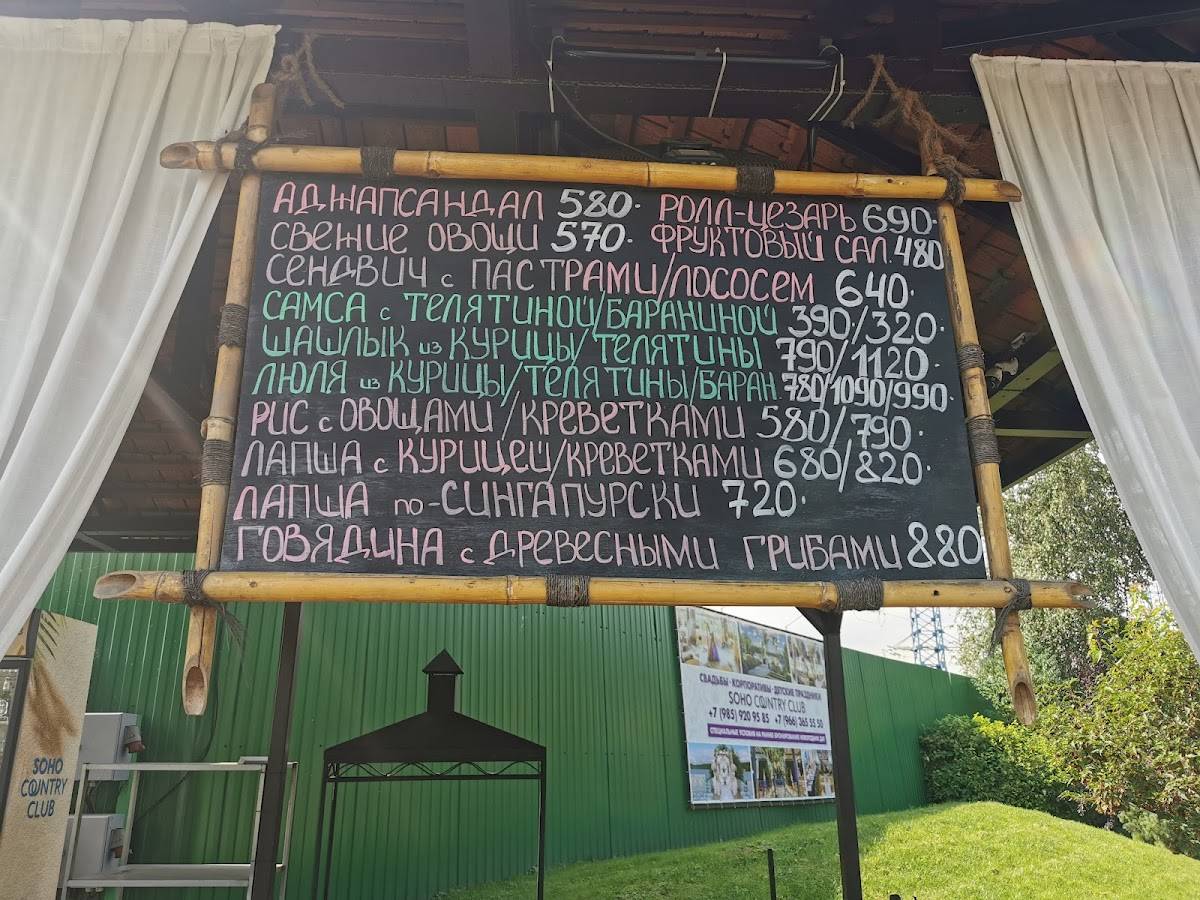 АДЖАПСАНДАЛ 580· РОЛЛ-ЦЕЗАРЬ 690·
СВЕЖИЕ ОВОЩИ 570· ФРУКТОВЫЙ САЛ. 480
СЕНДВИЧ с ПАСТРАМИ/ЛОСОСЕМ 640·
САМСА с ТЕЛЯТИНОЙ/БАРАНИНОЙ 390·/320·
ШАШЛЫК из КУРИЦЫ/ТЕЛЯТИНЫ 790/1120·
ЛЮЛЯ из КУРИЦЫ/ТЕЛЯТИНЫ/БАРАН. 780/1090/990·
РИС с ОВОЩАМИ/КРЕВЕТКАМИ 580/790·
ЛАПША с КУРИЦЕЙ/КРЕВЕТКАМИ 680/820·
ЛАПША по-СИНГАПУРСКИ 720·
ГОВЯДИНА с ДРЕВЕСНЫМИ ГРИБАМИ 880
СВАДЬБЫ · КОРПОРАТИВЫ · ДЕТСКИЕ ПРАЗДНИКИ
SOHO COUNTRY CLUB
+7 (985) 920 95 85 +7 (966) 365 55 50
СПЕЦИАЛЬНЫЕ УСЛОВИЯ НА РАННЕЕ БРОНИРОВАНИЕ НОВОГОДНИХ ДАТ
SOHO
COUNTRY
CLUB